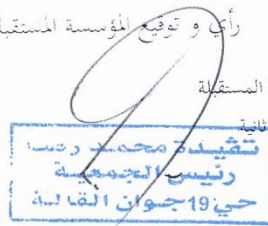 رأي و توقيع المؤسسة المستقبلة
المستقبلة
ثانية
محمد رضا
رئيس الجمعية
حي 19 جوان القالة